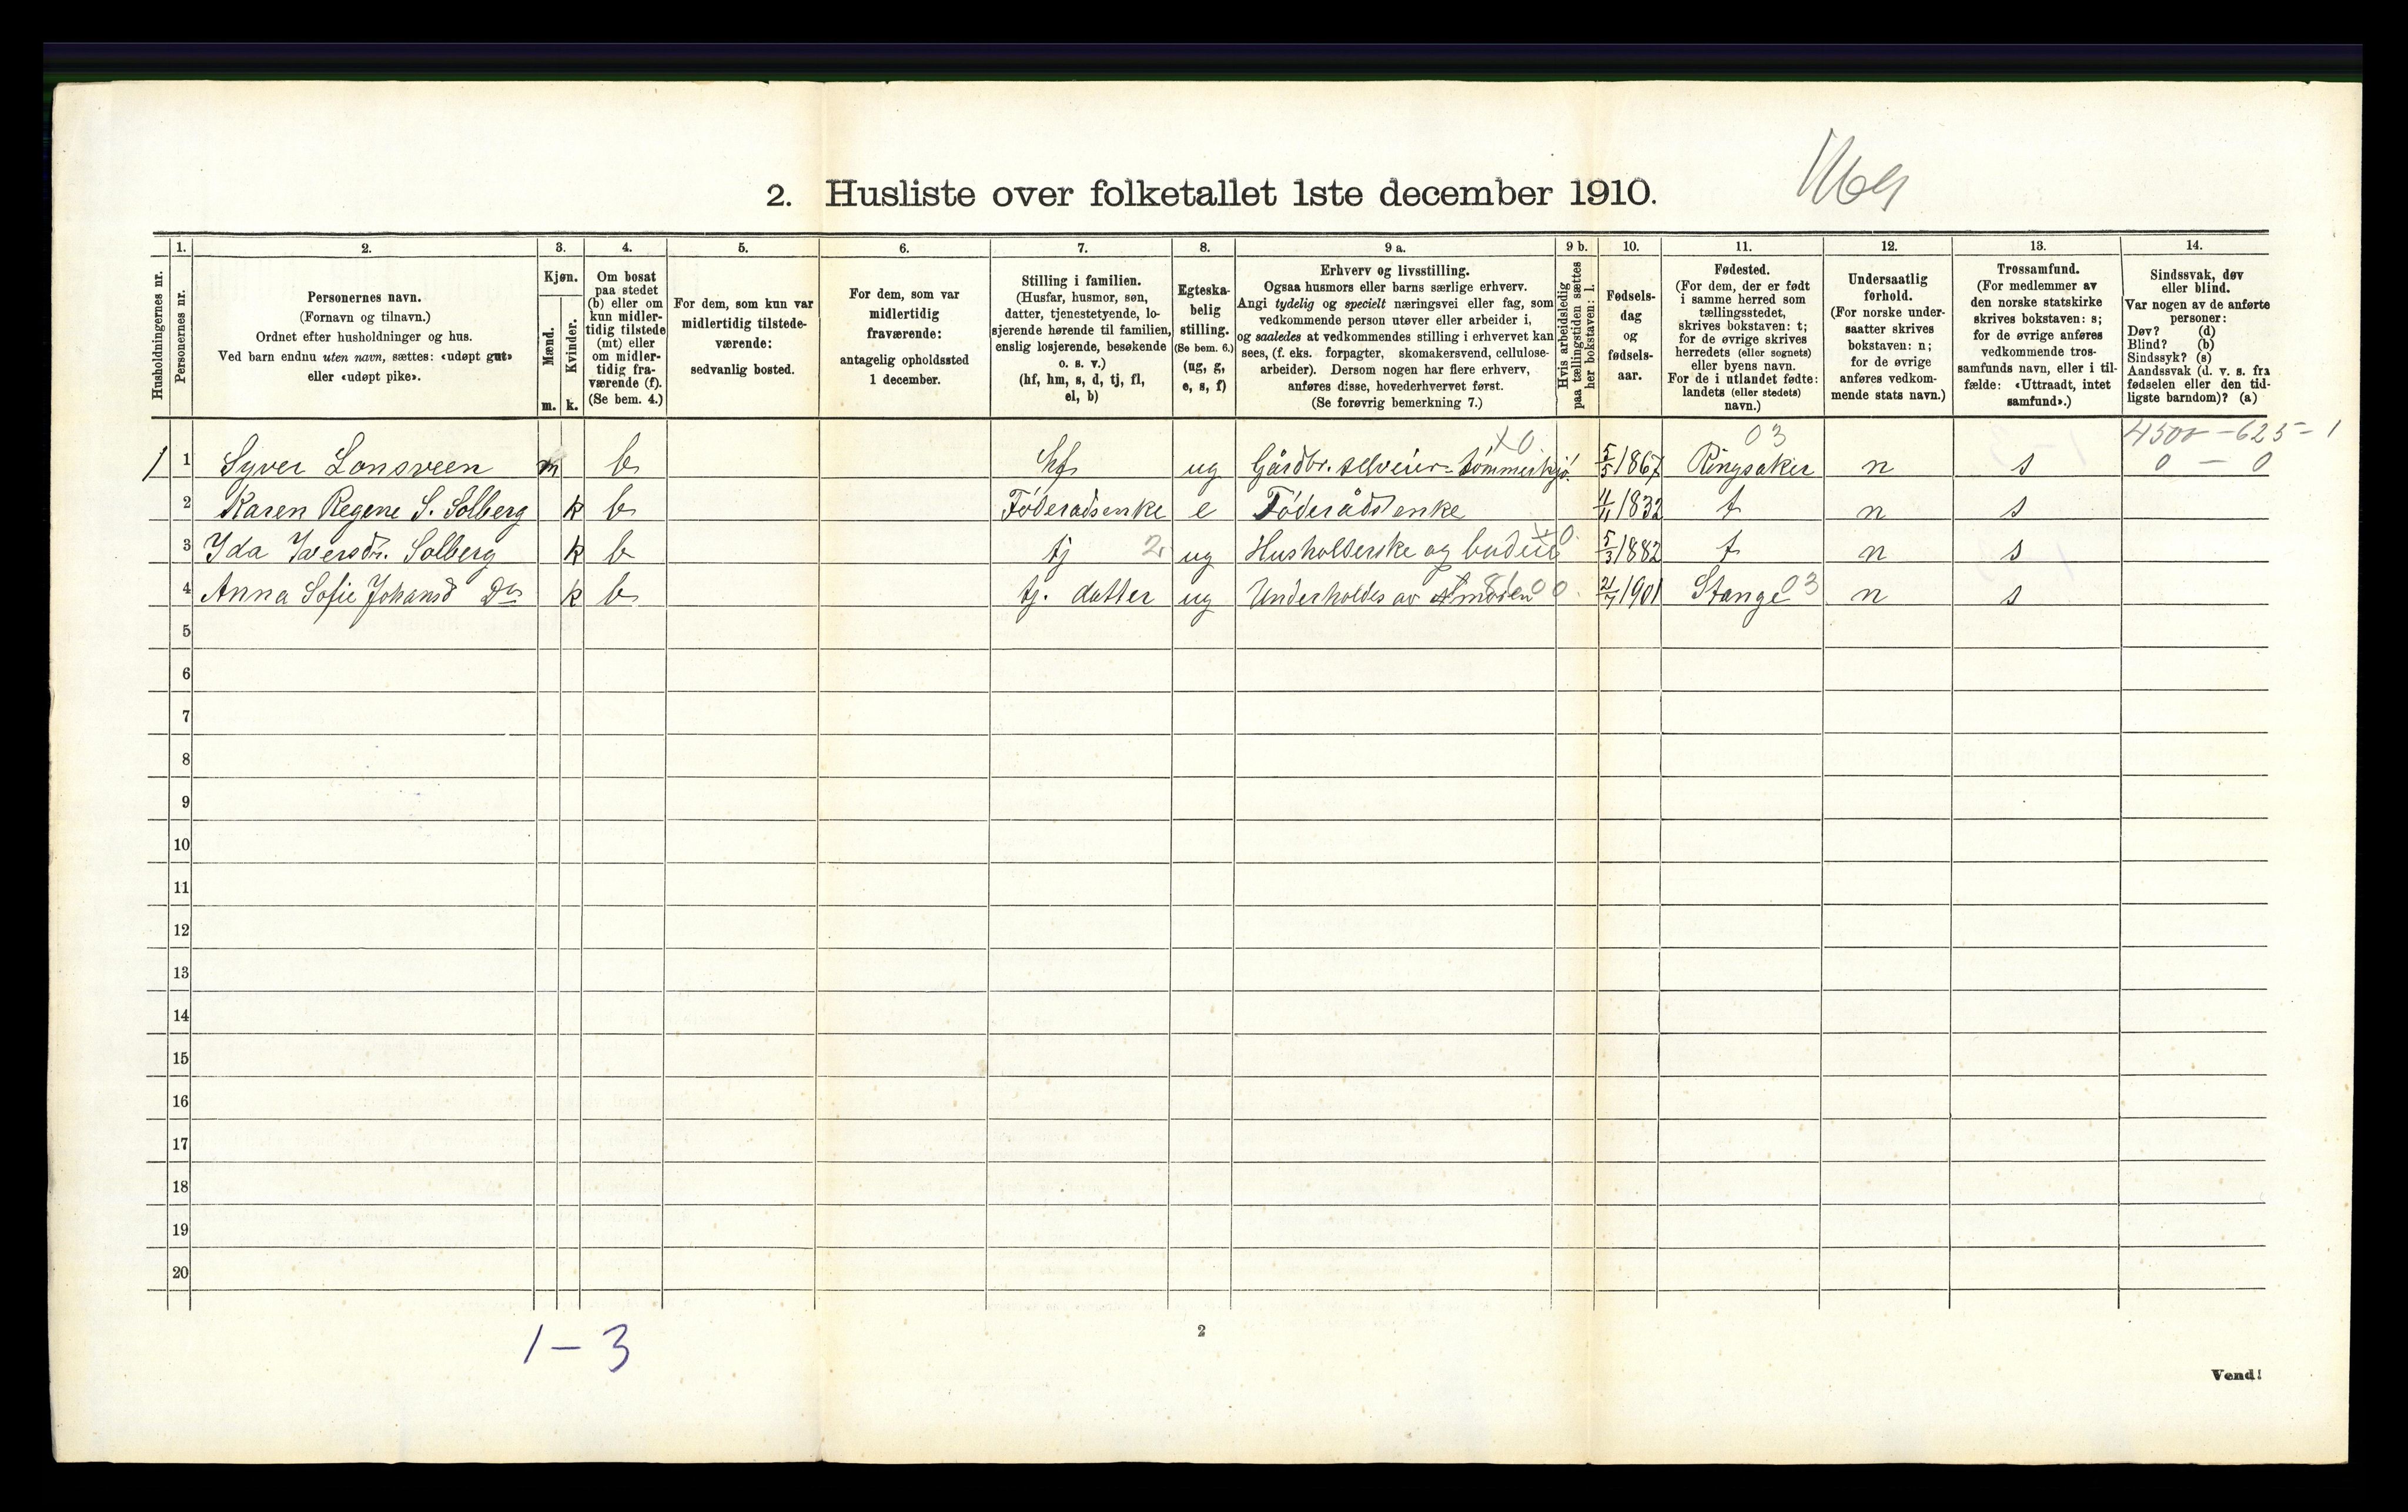 2. Husliste over folketallet 1ste december 1910.
Husholdningernes nr.
1. Personernes nr.
2. Personernes navn.
(Fornavn og tilnavn.)
Ordnet efter husholdninger og hus.
Ved barn endnu uten navn, sættes: «udøpt gut»
eller «udøpt pike».
3. Kjøn.
Mænd. m.
Kvinder. k.
4. Om bosat
paa stedet
(b) eller om
kun midler-
tidig tilstede
(mt) eller
om midler-
tidig fra-
værende (f).
(Se bem. 4.)
5. For dem, som kun var
midlertidig tilstede-
værende:
sedvanlig bosted.
6. For dem, som var
midlertidig
fraværende:
antagelig opholdssted
1 december.
7. Stilling i familien.
(Husfar, husmor, søn,
datter, tjenestetyende, lo-
sjerende hørende til familien,
enslig losjerende, besøkende
o. s. v.)
(hf, hm, s, d, tj, fl,
el, b)
8. Egteska-
belig
stilling.
(Se bem. 6.)
(ug, g,
e, s, f)
9 a. Erhverv og livsstilling.
Ogsaa husmors eller barns særlige erhverv.
Angi tydelig og specielt næringsvei eller fag, som
vedkommende person utøver eller arbeider i,
og saaledes at vedkommendes stilling i erhvervet kan
sees, (f. eks. forpagter, skomakersvend, cellulose-
arbeider). Dersom nogen har flere erhverv,
anføres disse, hovederhvervet først.
(Se forøvrig bemerkning 7.)
9 b. Hvis arbeidsledig
paa tællingstiden sættes
her bokstaven: l.
10. Fødsels-
dag
og
fødsels-
aar.
11. Fødested.
(For dem, der er født
i samme herred som
tællingsstedet,
skrives bokstaven: t;
for de øvrige skrives
herredets (eller sognets)
eller byens navn.
For de i utlandet fødte:
landets (eller stedets)
navn.)
12. Undersaatlig
forhold.
(For norske under-
saatter skrives
bokstaven: n;
for de øvrige
anføres vedkom-
mende stats navn.)
13. Trossamfund.
(For medlemmer av
den norske statskirke
skrives bokstaven: s;
for de øvrige anføres
vedkommende tros-
samfunds navn, eller i til-
fælde: «Uttraadt, intet
samfund».)
14. Sindssvak, døv
eller blind.
Var nogen av de anførte
personer:
Døv? (d)
Blind? (b)
Sindssyk? (s)
Aandssvak (d. v. s. fra
fødselen eller den tid-
ligste barndom)? (a)
x0 03 4500 - 625 - 1
1 1 Syver Lonsveen m b hf ug Gårdbr. selveier - tømmerkjø. 5/5 1867 Ringsaker n s 0 - 0
2 Karen Regene S. Solberg k b Føderadsenke e Føderådsenke 4/11 1832 t n s
3 Ida Iversdr. Solberg k b tj 2 ug Husholderske og budeie x0 5/3 1882 t n s
4 Anna Sofie Johansd Do k b tj. datter ug Underholdes av moren 0 21/7 1901 Stange 03 n s
5
6
7
8
9
10
11
12
13
14
15
16
17
18
19
20
1 - 3
2
Vend!